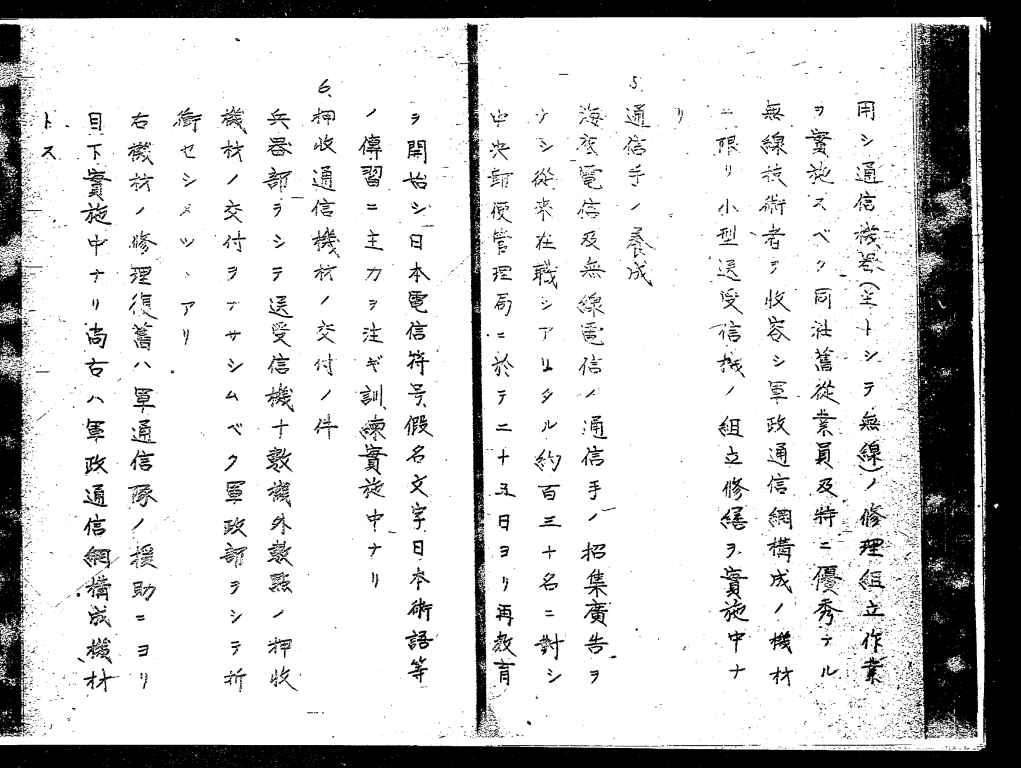 用シ通信機器(主トシテ無線)ノ修理組立作業
ヲ實施スベク同社舊從業員及特ニ優秀ナル
無線技術者ヲ收容シ軍政通信網構成ノ機材
ニ限リ小型送受信機ノ組立修繕ヲ實施中ナ
リ
5.通信手ノ養成
海底電信及無線電信ノ通信手ノ招集廣告ヲ
ナシ從來在職シアリタル約百三十名ニ對シ
中央郵便管理局ニ於テ二十五日ヨリ再教育
ヲ開始シ日本電信符号假名文字日本術語等
ノ傳習ニ主力ヲ注ギ訓練實施中ナリ
6.押收通信機材ノ交付ノ件
兵器部ヲシテ送受信機十數機外數點ノ押收
機材ノ交付ヲナサシムベク軍政部ヲシテ折
衝セシメツヽアリ
右機材ノ修理復舊ハ軍通信隊ノ援助ニヨリ
目下實施中ナリ尚右ハ軍政通信網構成機材
トス